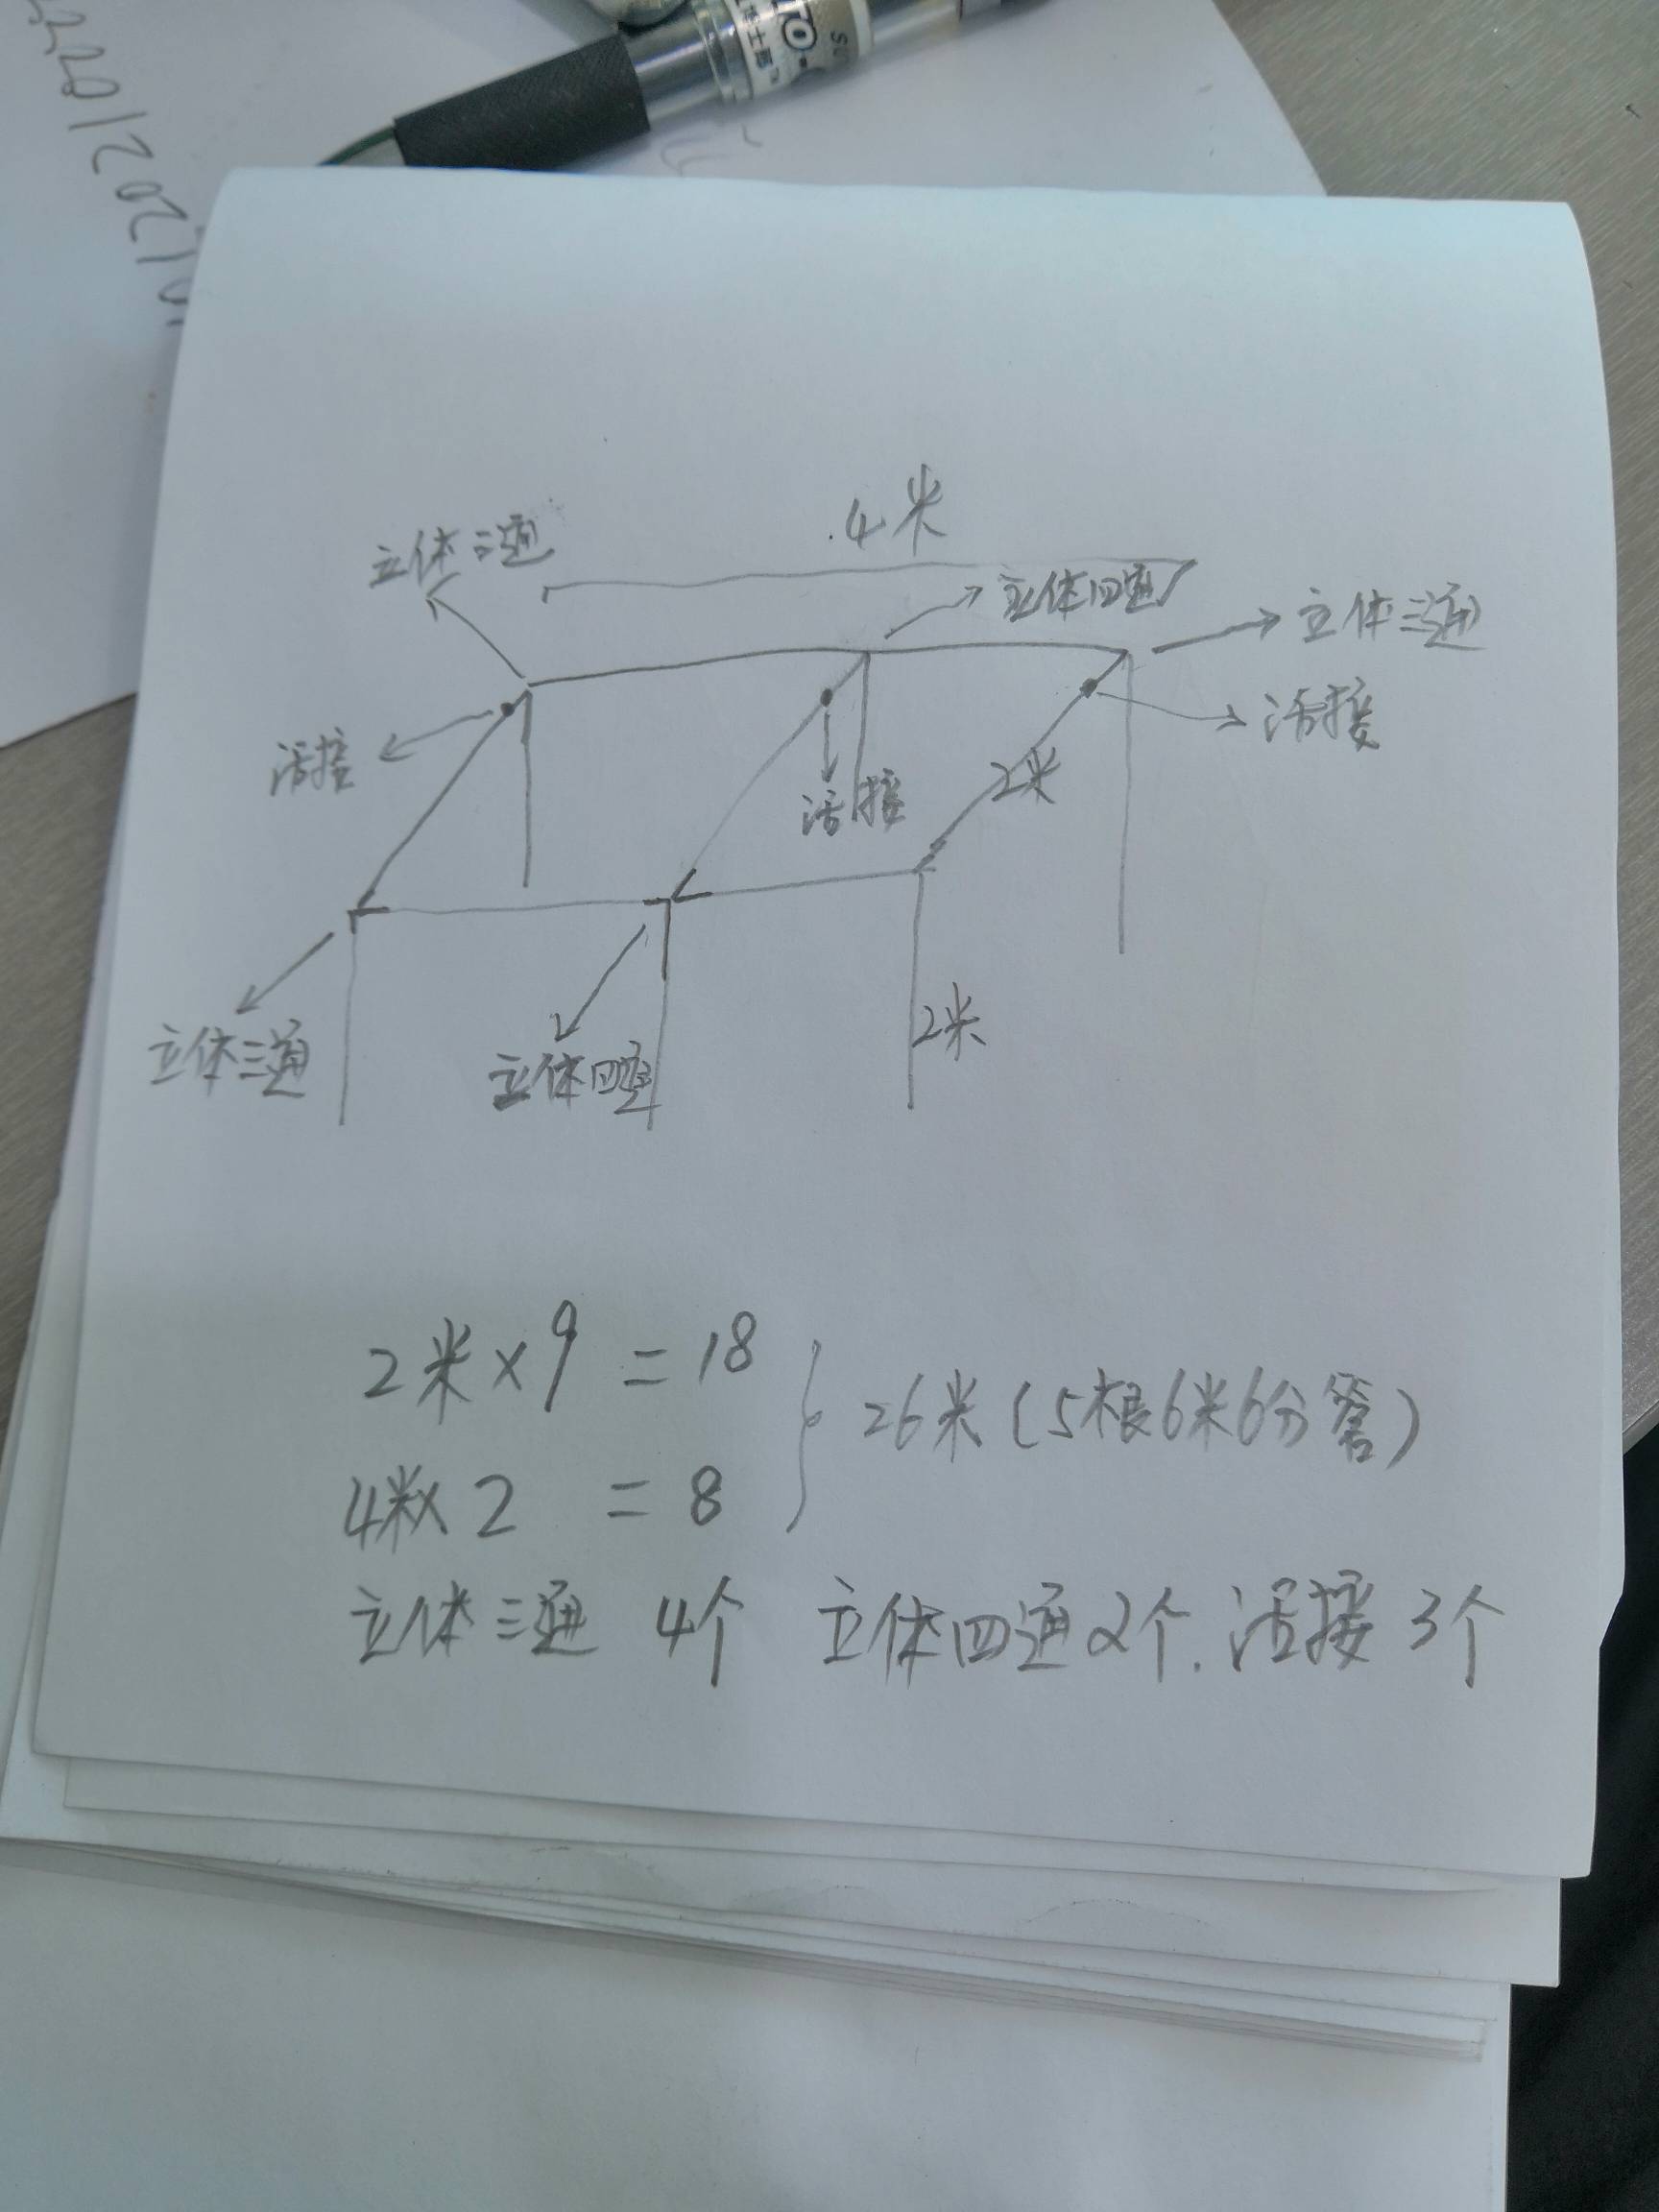 4米
立体三通
立体四通
立体三通
活接
活接
活接
2米
立体三通
立体四通
2米
2米×9 = 18
26米(5根6米6分管)
4米×2 = 8
立体三通 4个 立体四通2个.活接 3个